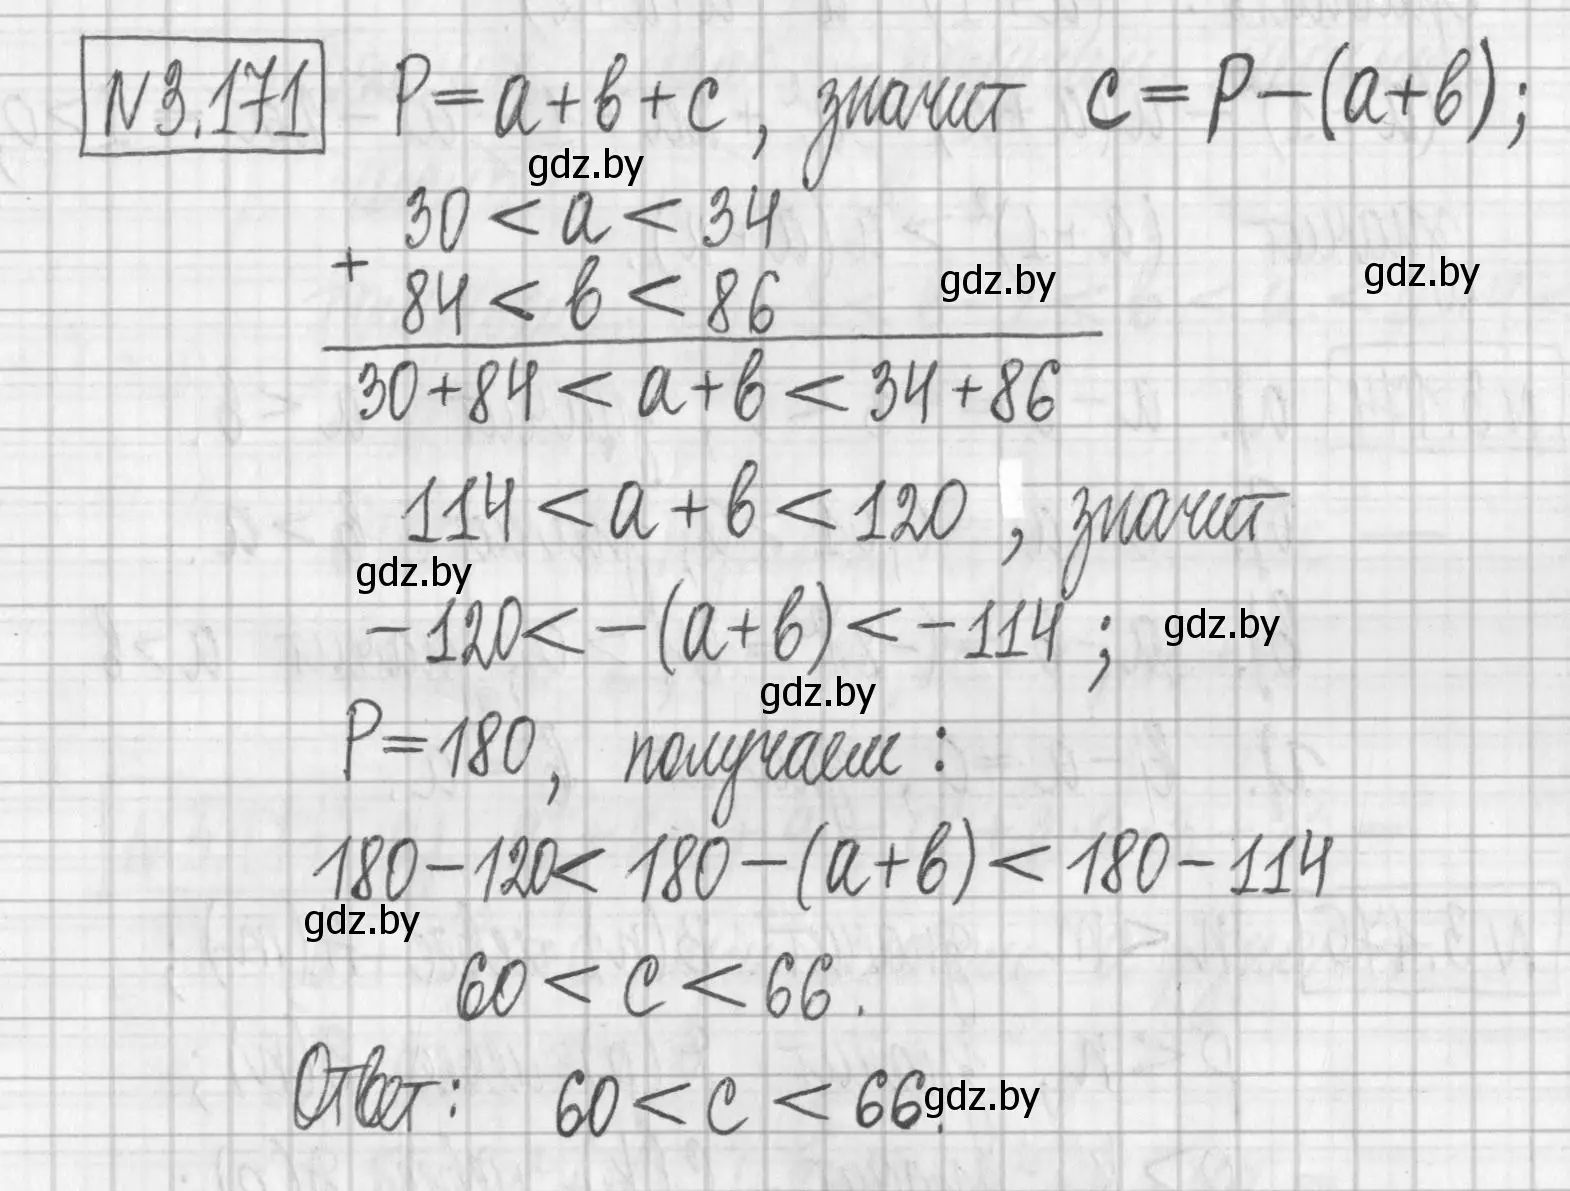 N3.171 P=a+b+c, значит c=P-(a+b);
gdz.by
30<a<34
+
84<b<86 gdz.by gdz.by
30+84<a+b<34+86
114<a+b<120, значит
gdz.by
-120<-(a+b)<-114; gdz.by
gdz.by
P=180, получаем:
180-120<180-(a+b)<180-114
gdz.by
60<c<66.
Ответ: 60<c<66. gdz.by